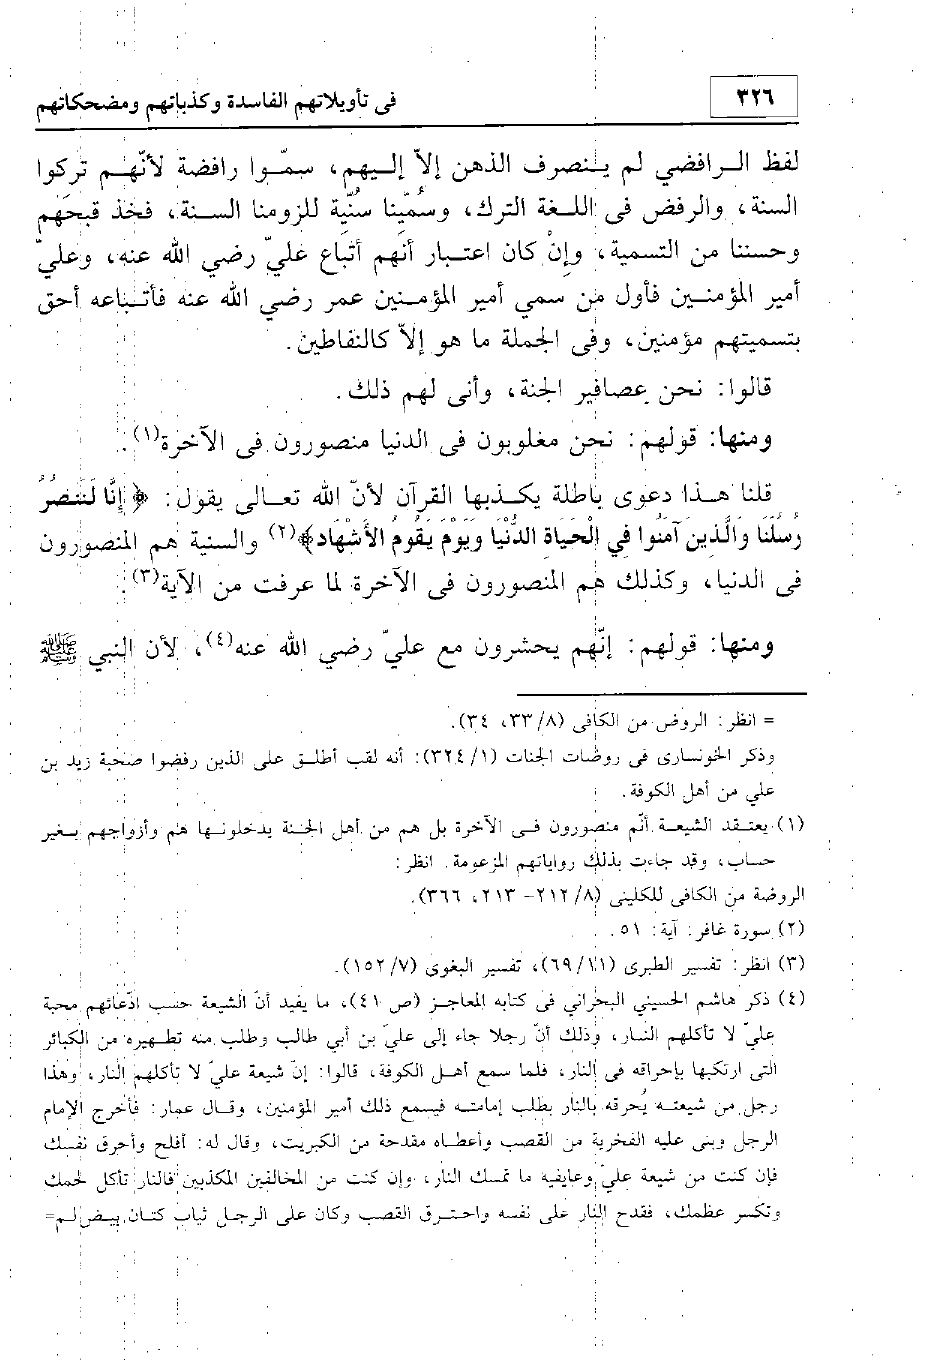 ٣٢٦
فى تأويلاتهم الفاسدة وكذباتهم ومضحكاتهم
لفظ الـرافضي لم يـنصرف الذهن إلاّ إلـيهم، سمّـوا رافضة لأنّـهـم تركوا
السنة، والرفض فى اللـغة الترك، وسُمّينا سنّية للزومنا السـنة، فخذ قبحَهم
وحسننا من التسمية، وإنْ كان اعتـبار أنهم أتباع عليّ رضي الله عنه، وعليّ
أمير المؤمنــين فأول من سمي أمير المؤمـنين عمر رضي الله عنه فأتـباعه أحق
بتسميتهم مؤمنين، وفى الجملة ما هو إلاّ كالنفاطين.
قالوا: نحن عصافير الجنة، وأنى لهم ذلك.
ومنها: قولهم: نحن مغلوبون فى الدنيا منصورون فى الآخرة(١).
قلنا هـذا دعوى باطلة يكـذبها القرآن لأنّ الله تعـالى يقول: ﴿إِنَّا لَنَنصُرُ
رُسُلَنَا وَالَّذِينَ آمَنُوا فِي الْحَيَاةِ الدُّنْيَا وَيَوْمَ يَقُومُ الأَشْهَاد﴾(٢) والسنية هم المنصورون
فى الدنيا، وكذلك هم المنصورون فى الآخرة لما عرفت من الآية(٣).
ومنها: قولهم: إنّهم يحشرون مع عليّ رضي الله عنه(٤)، لأن النبي ﷺ
= انظر: الروض من الكافى (٣٣/٨، ٣٤).
وذكر الخونسارى فى روضات الجنات (٣٢٤/١): أنه لقب أطلـق على الذين رفضوا صحبة زيد بن
علي من أهل الكوفة.
(١) يعتـقد الشيعـة أنّم منصورون فـى الآخرة بل هم من أهل الجـنة يدخلونـها هم وأزواجهم بـغير
حساب، وقد جاءت بذلك رواياتهم المزعومة. انظر:
الروضة من الكافى للكلينى (٢١٢/٨- ٢١٣، ٣٦٦).
(٢) سورة غافر: آية: ٥١.
(٣) انظر: تفسير الطبرى (٦٩/١١)، تفسير البغوى (١٥٢/٧).
(٤) ذكر هاشم الحسيني البحراني فى كتابه المعاجـز (ص ٤١)، ما يفيد أنّ الشيعة حسب ادّعائهم محبة
عليّ لا تأكلهم النـار، وذلك أنّ رجلا جاء إلى عليّ بن أبي طالب وطلب منه تطهيره من الكبائر
التى ارتكبها بإحراقه فى النار، فلما سمع أهـل الكوفة، قالوا: إنّ شيعة عليّ لا تأكلهم النار، وهذا
رجل من شيعتـه يُحرقه بالنار بطلب إمامتـه فيسمع ذلك أمير المؤمنين، وقـال عمار: فأخرج الإمام
الرجل وبنى عليه الفخرية من القصب وأعطاه مقدحة من الكبريت، وقال له: أفلح وأحرق نفسـك
فإن كنت من شيعة عليّ وعايفيه ما تمسك النار، وإن كنت من المخالفين المكذبين فالنار تأكل لحمك
وتكسر عظمك، فقدح النار على نفسه واحتـرق القصب وكان على الرجل ثياب كتان بيـض لـم=